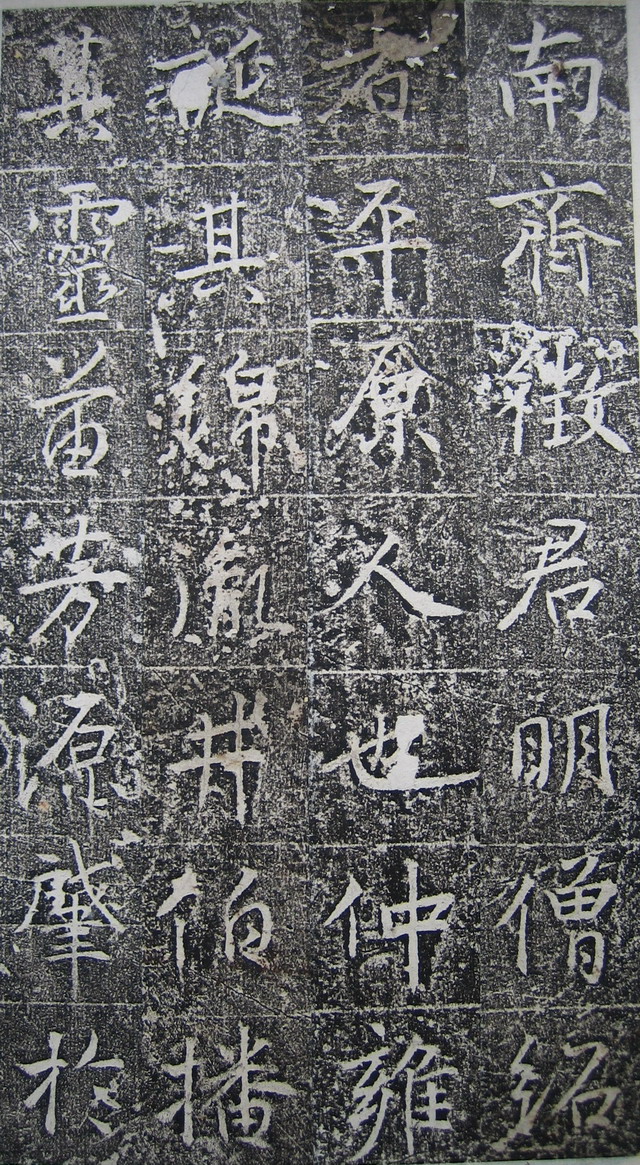 南齊徵君明僧紹
者平原人也仲雍
誕其綿胤井伯播
其靈苗芳源肇於